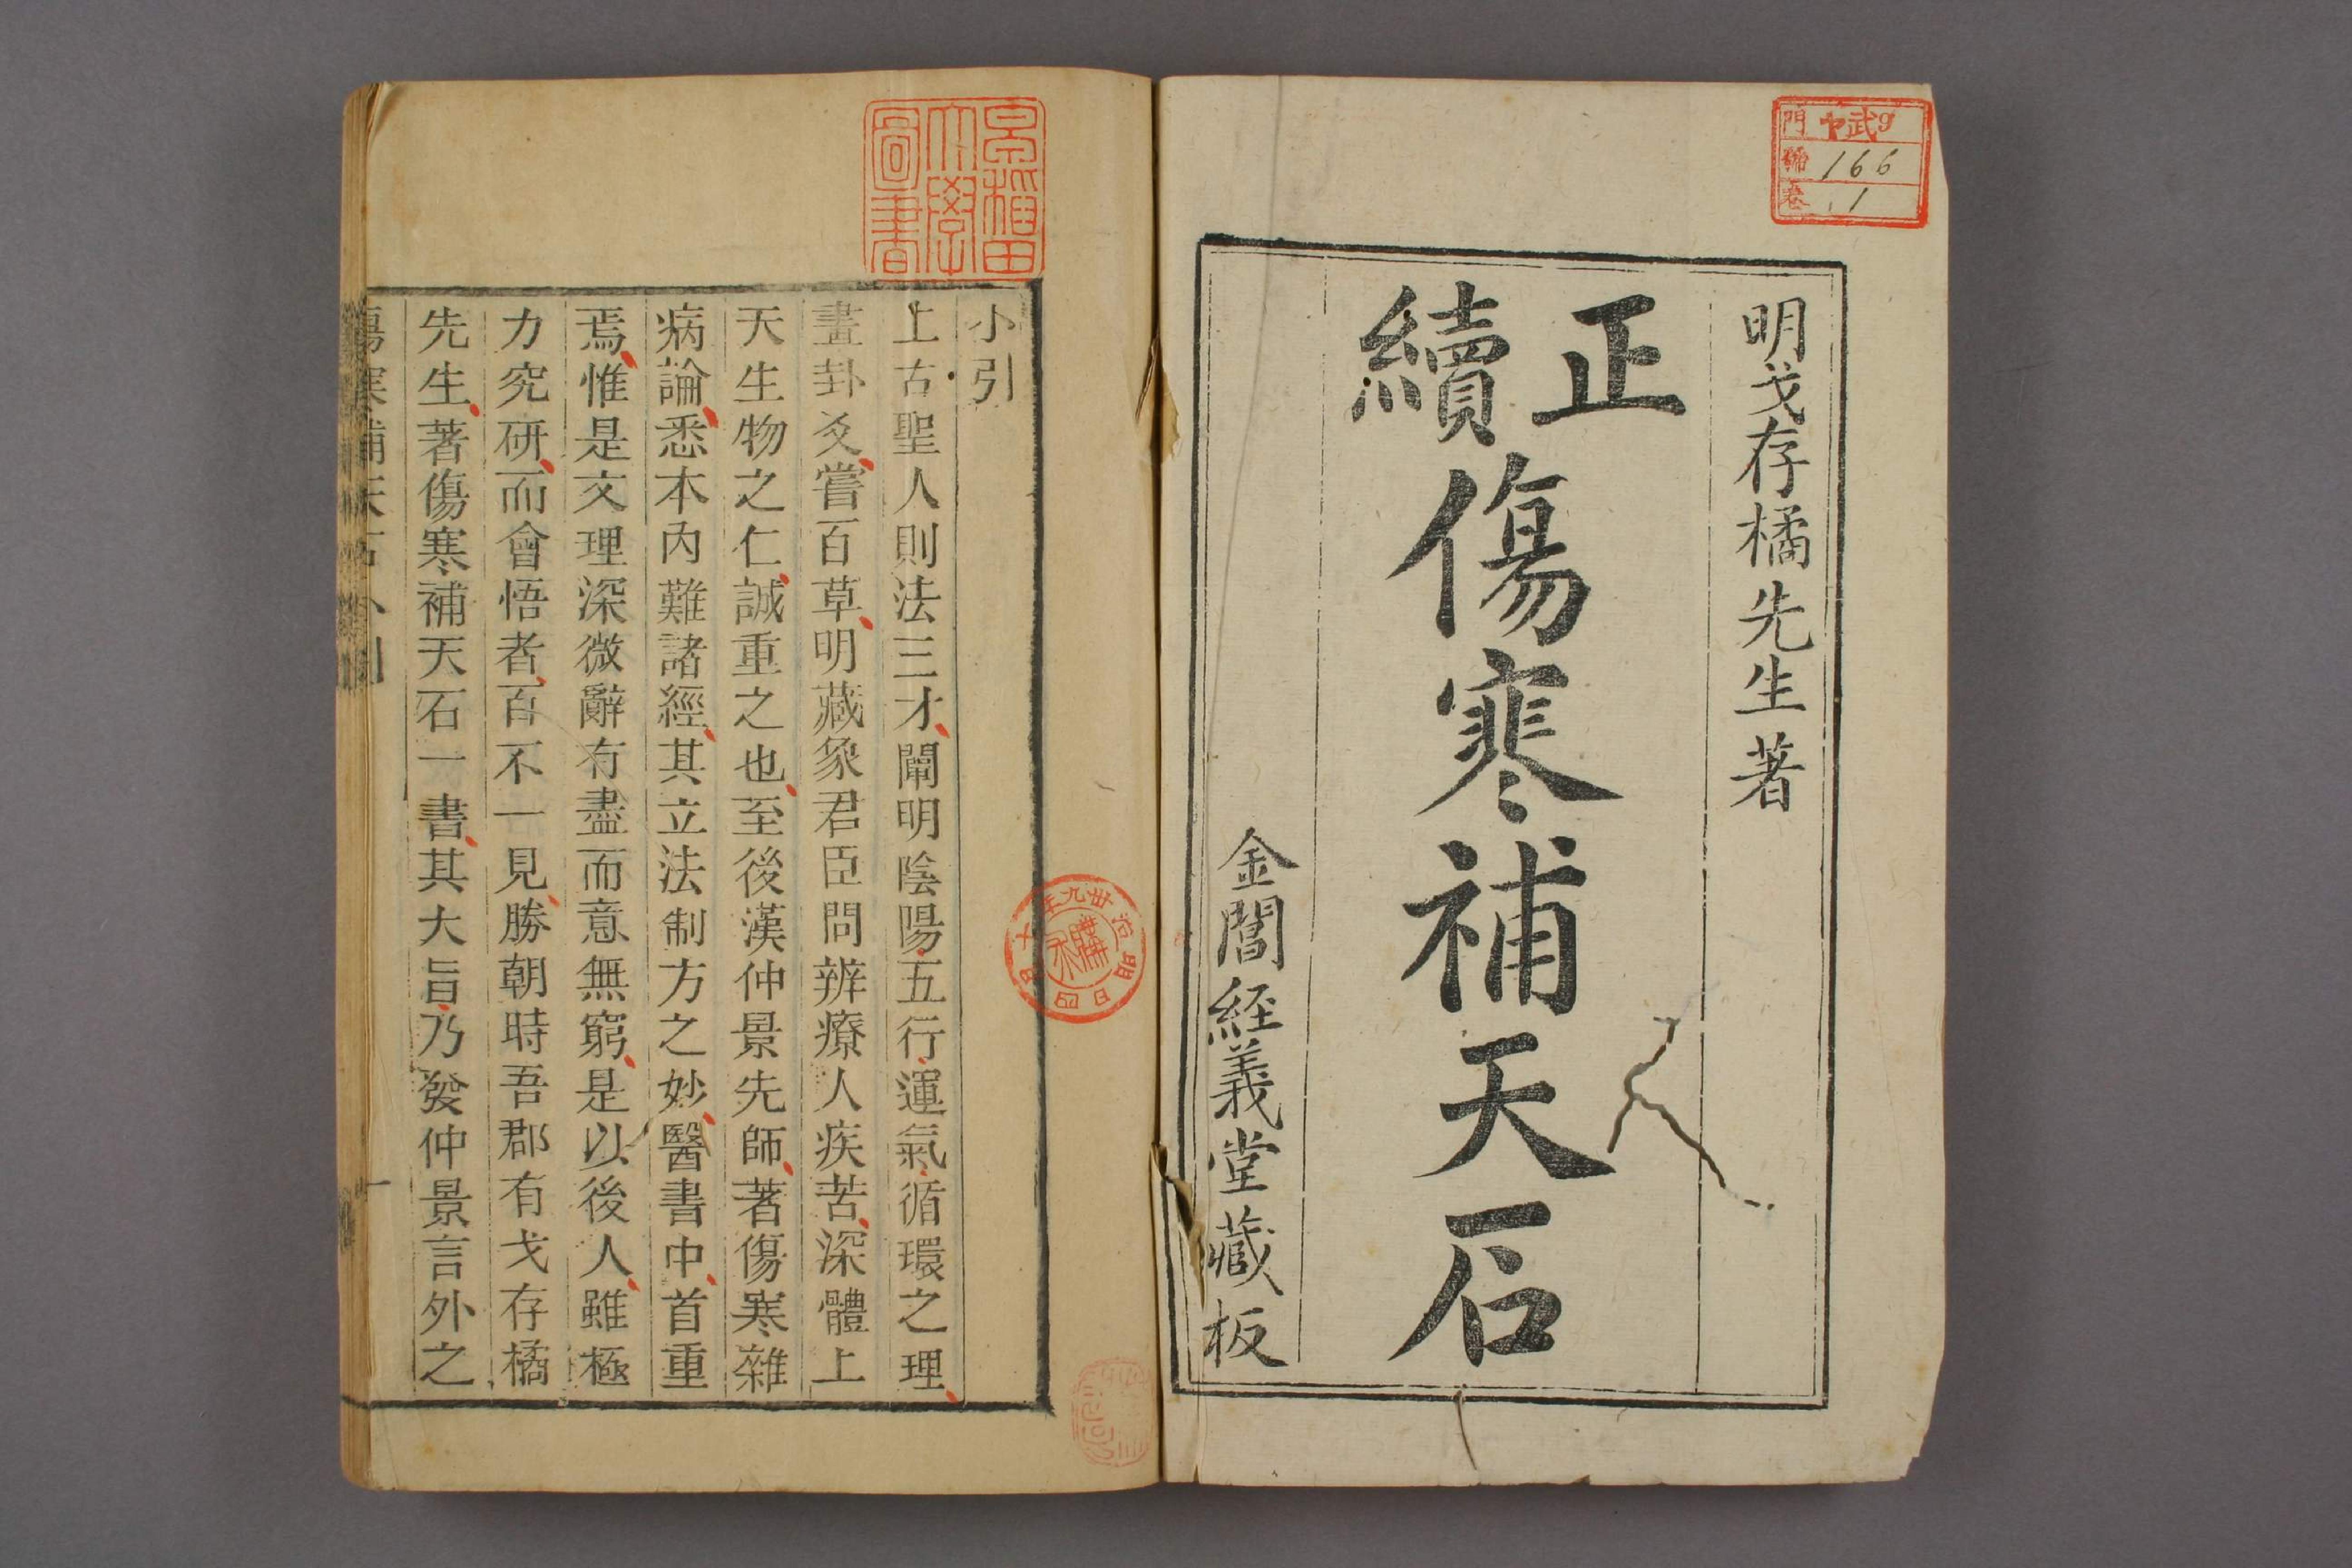 門 ヤ武9
號 166
卷 1
明戈存橘先生著
正續傷寒補天石
金閶経義堂藏板
早稲田大學圖書
小引
上古聖人則法三才闡明陰陽五行運氣循環之理
畫卦爻嘗百草明藏象君臣問辨療人疾苦深體上
天生物之仁誠重之也至後漢仲景先師著傷寒雜
病論悉本內難諸經其立法制方之妙醫書中首重
焉惟是文理深微辭有盡而意無窮是以後人雖極
力究研而會悟者百不一見勝朝時吾郡有戈存橘
先生著傷寒補天石一書其大旨乃發仲景言外之
傷寒補天石小引 一
明治卅九年
四日
購求